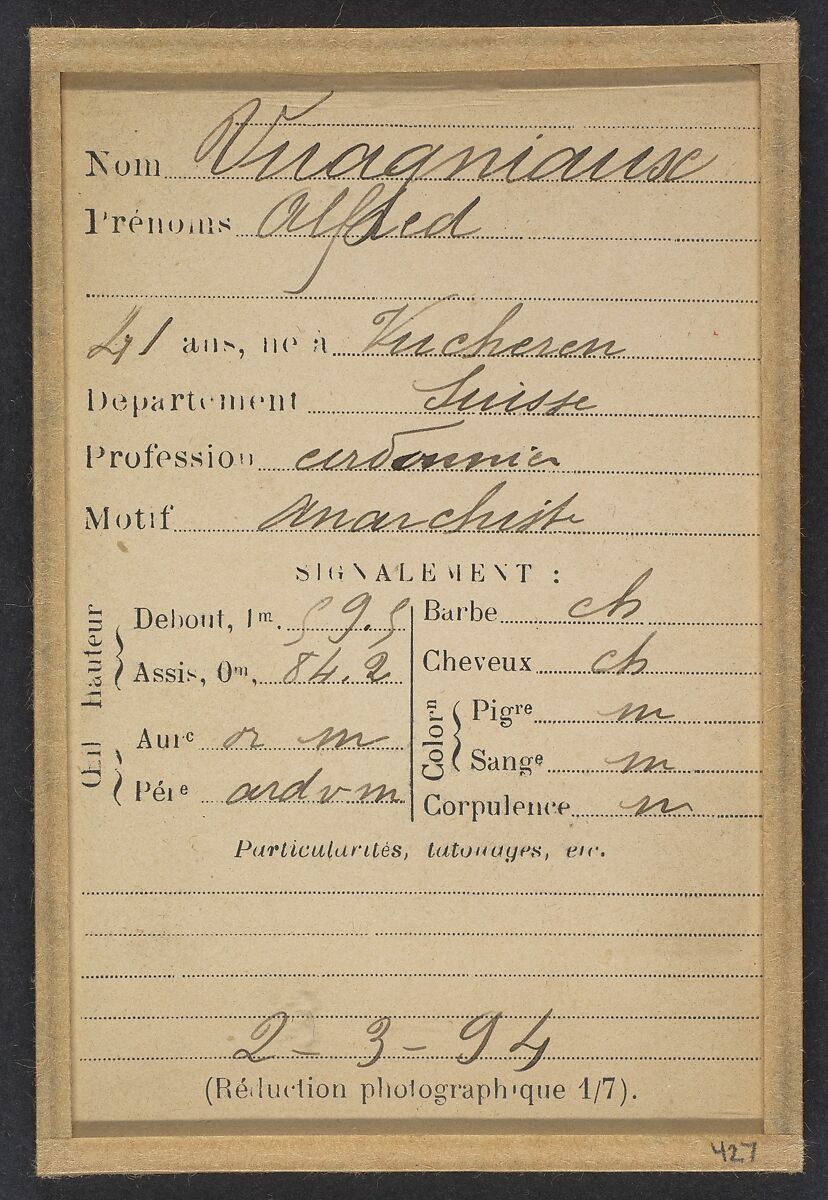 Nom Vuagniaux
Prénoms Alfred
41 ans, né à Vucheren
Département Suisse
Profession cordonnier
Motif anarchiste
SIGNALEMENT :
hauteur
Debout, 1m. 59.5
Assis, 0m, 84.2
Œil
Aurᵉ or m
Périᵉ ard v m
Barbe ch
Cheveux ch
Colorⁿ
Pigʳᵉ m
Sangᵉ m
Corpulence m
Particularités, tatouages, etc.
2-3-94
(Réduction photographique 1/7).
427